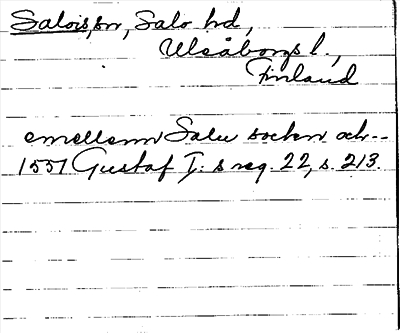 Salois sn, Salo hd,
Uleåborgs l.,
Finland
emellenn Salu socken och--
1551 Gustaf I:s reg. 22, s. 213.